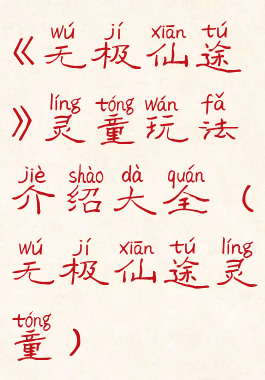 wú jí xiān tú
《无极仙途
líng tóng wán fǎ
》灵童玩法
jiè shào dà quán
介绍大全（
wú jí xiān tú líng
无极仙途灵
tóng
童）